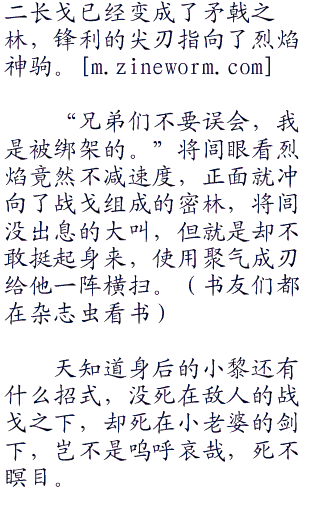 二长戈已经变成了矛戟之
林，锋利的尖刃指向了烈焰
神驹。[m.zineworm.com]
“兄弟们不要误会，我
是被绑架的。”将闾眼看烈
焰竟然不减速度，正面就冲
向了战戈组成的密林，将闾
没出息的大叫，但就是却不
敢挺起身来，使用聚气成刃
给他一阵横扫。（书友们都
在杂志虫看书）
天知道身后的小黎还有
什么招式，没死在敌人的战
戈之下，却死在小老婆的剑
下，岂不是呜呼哀哉，死不
瞑目。